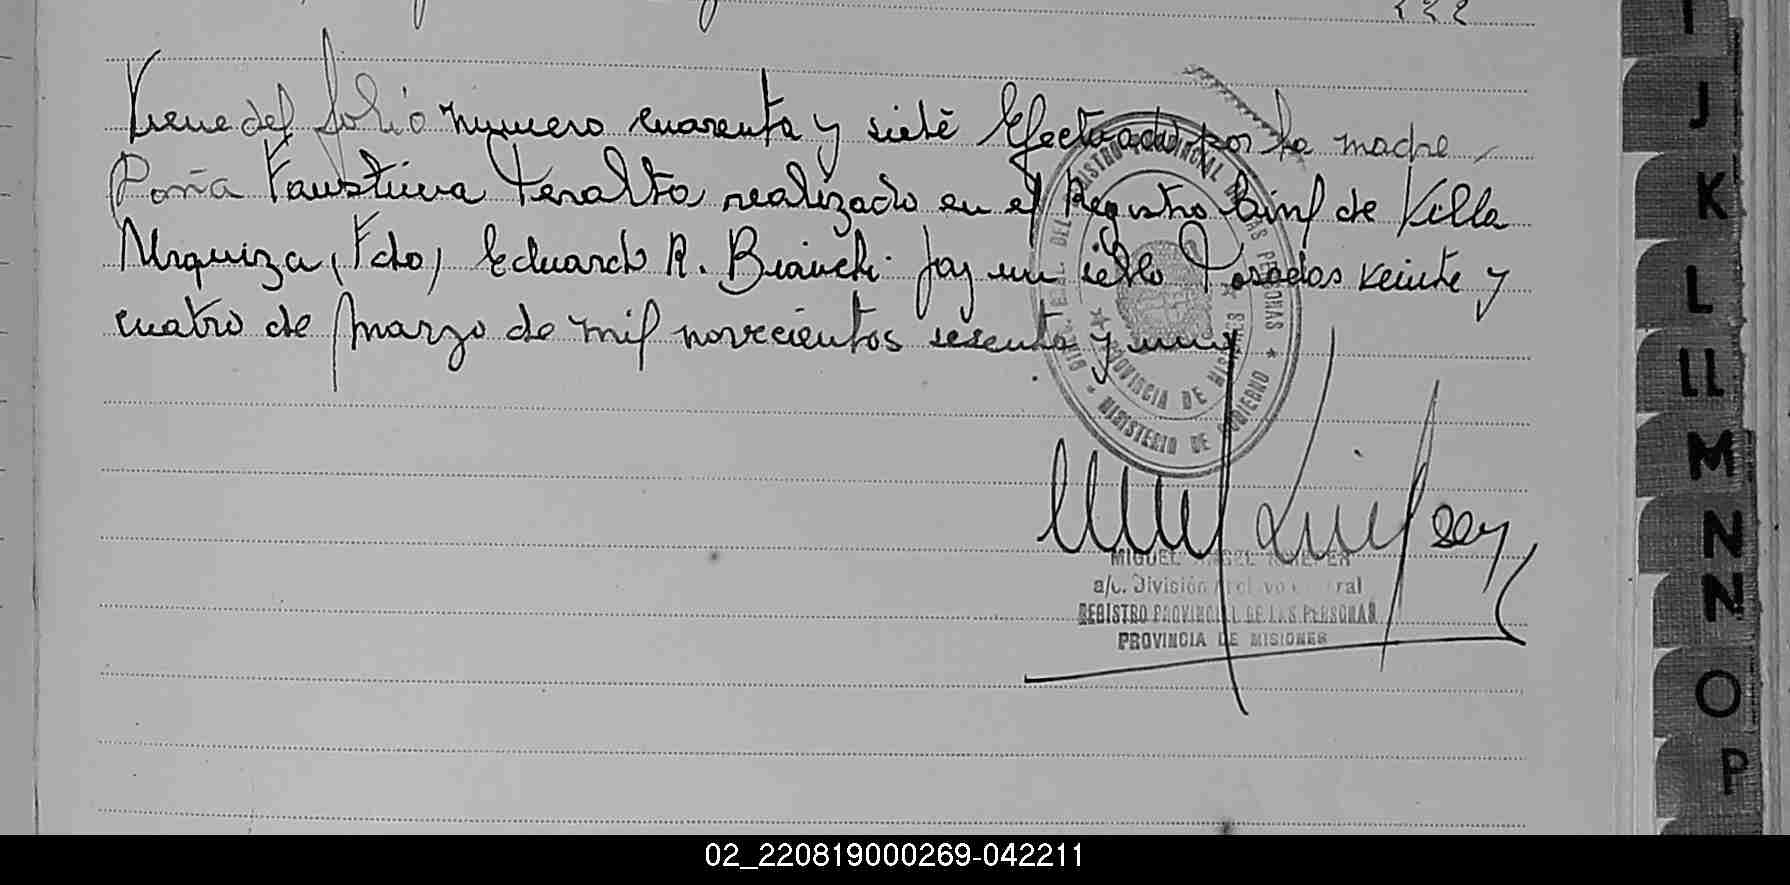 Viene del folio numero cuarenta y siete Efectuado por la madre
Doña Faustina Peralta realizado en el Registro Civil de Villa
Urquiza, (Fdo) Eduardo R. Bianchi. Hay un sello Posadas veinte y
cuatro de marzo de mil novecientos sesenta y uno
REGISTRO PROVINCIAL DE LAS PERSONAS
MINISTERIO DE GOBIERNO
PROVINCIA DE MISIONES
MIGUEL ANGEL
a/c. División Archivo General
REGISTRO PROVINCIAL DE LAS PERSONAS
PROVINCIA DE MISIONES
I
J
K
L
LL
M
N
N
O
P
02_220819000269-042211